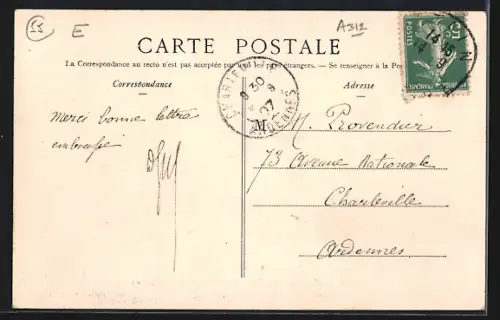 55
E
A312
CARTE POSTALE
La Correspondance au recto n'est pas acceptée par tout les pays étrangers. — Se renseigner à la Poste
Correspondance
Adresse
CHARLEVILLE
9 30
8
07
ARDENNES
POSTES
Merci bonne lettre
embrasse
M. Provendier
73 Avenue Nationale
Charleville
Ardennes